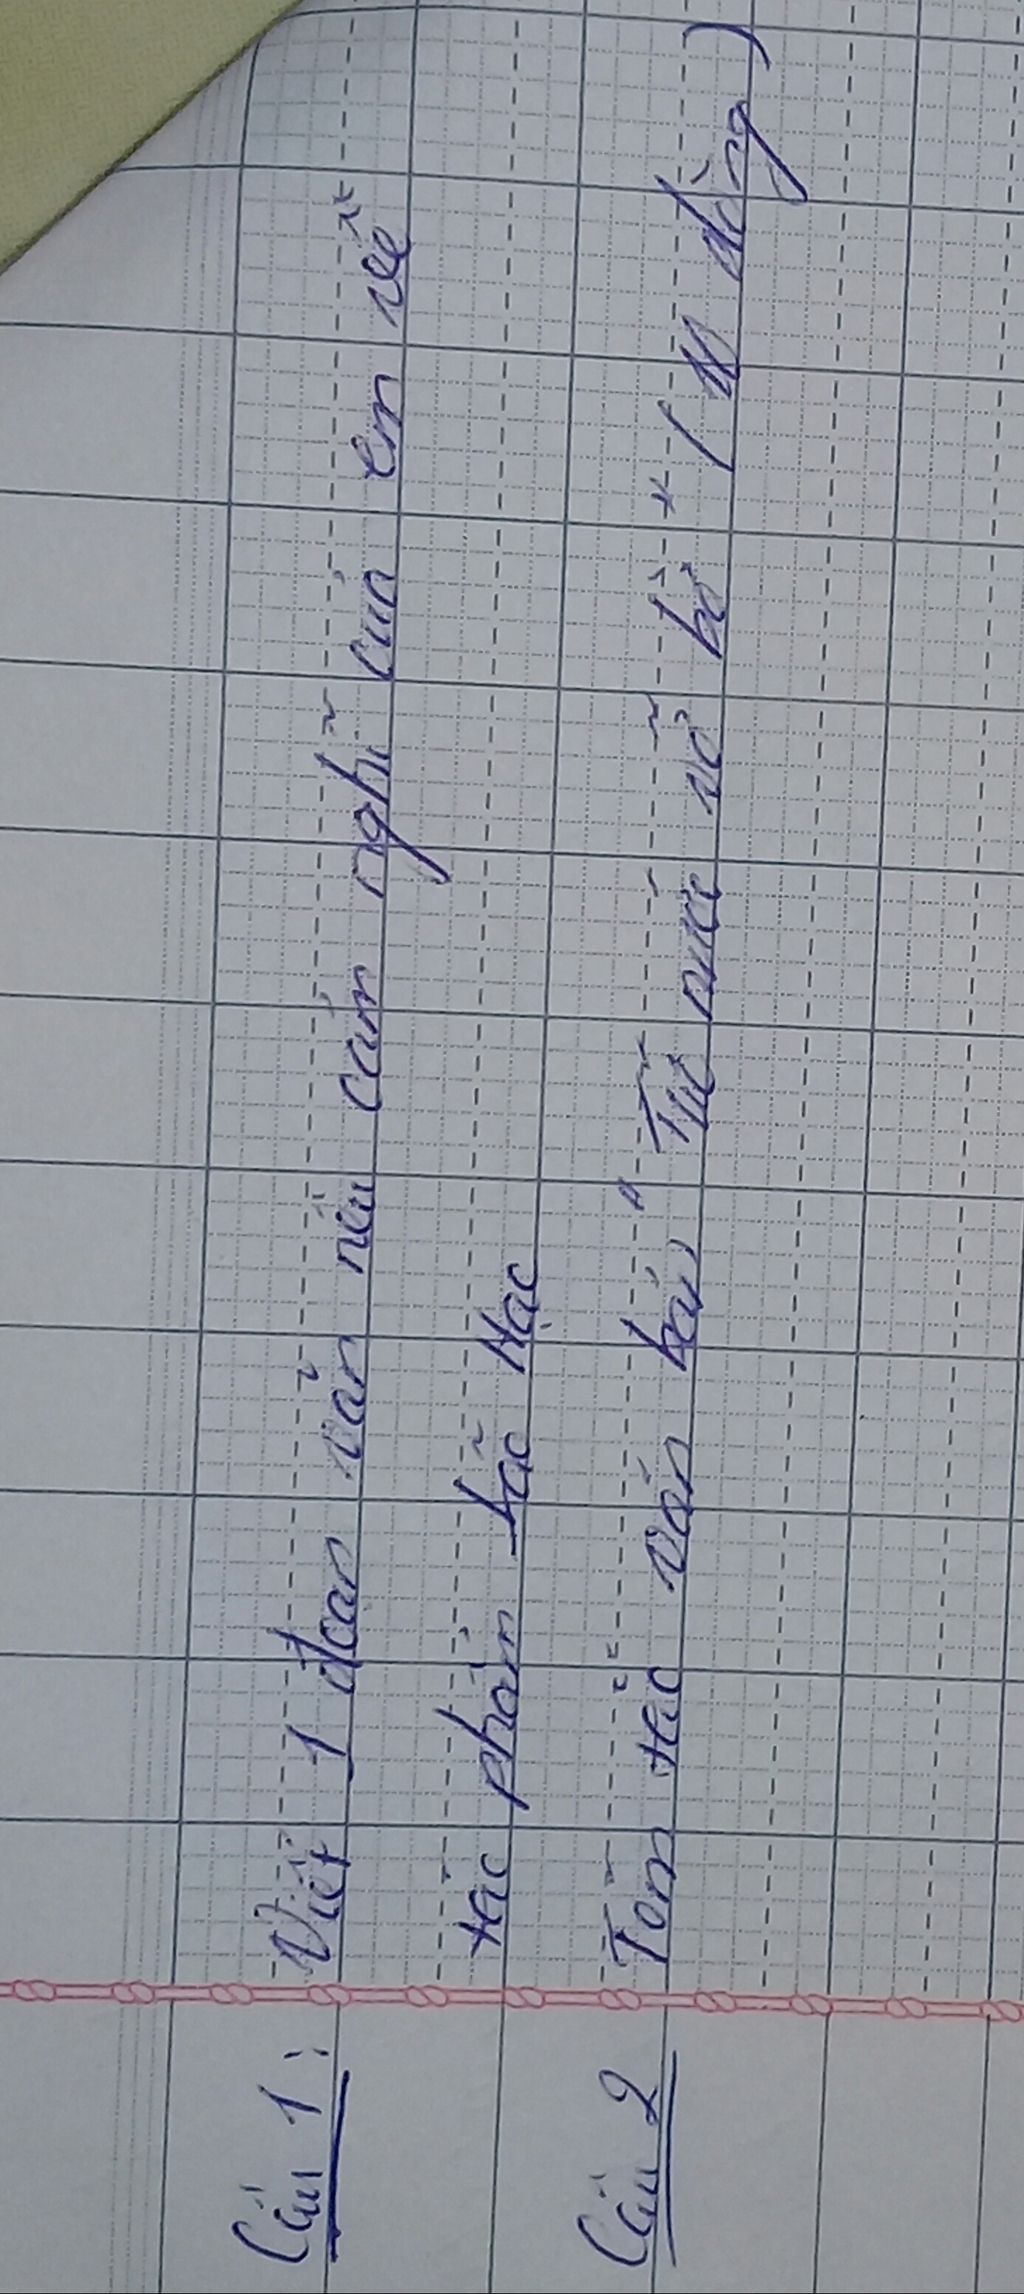 Câu 1: Viết 1 đoạn văn nêu cảm nghĩ của em về
tác phẩm Lão Hạc
Câu 2 Tóm tắt văn bản " Tức nước vỡ bờ " ( 10 dòng )